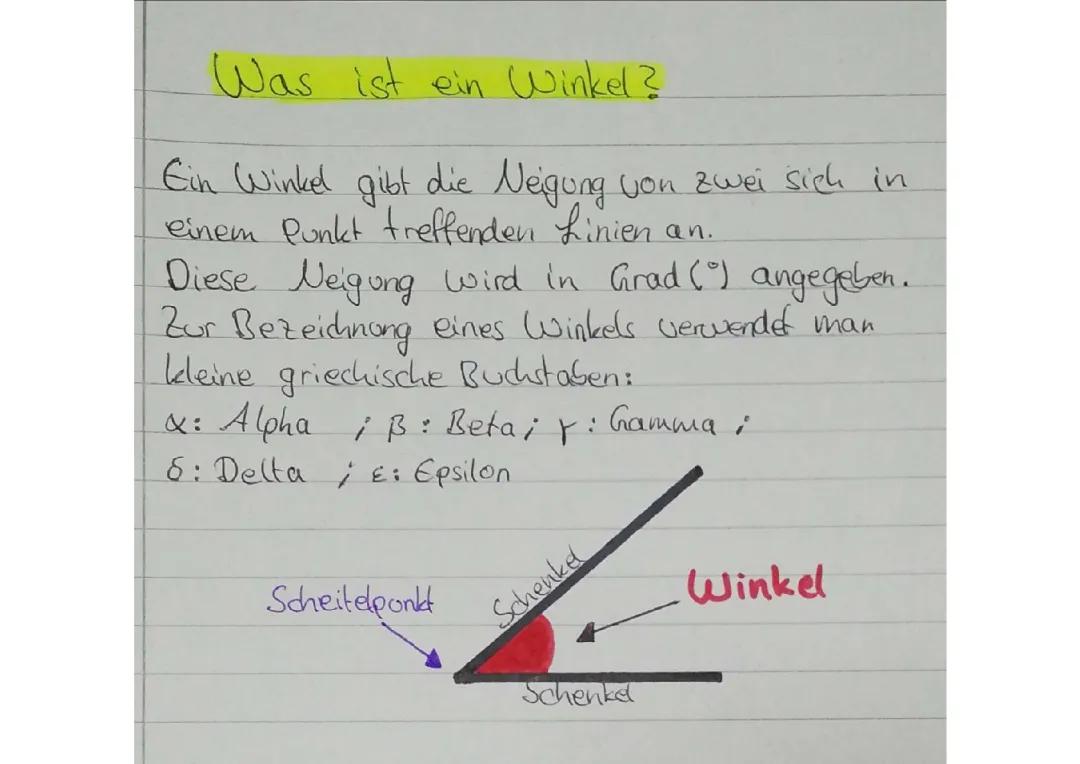 Was ist ein Winkel?
Ein Winkel gibt die Neigung von zwei sich in
einem Punkt treffenden Linien an.
Diese Neigung wird in Grad (°) angegeben.
Zur Bezeichnung eines Winkels verwendet man
kleine griechische Buchstaben:
α: Alpha ; β: Beta; γ: Gamma ;
δ: Delta ; ε: Epsilon
Schenkel
Winkel
Scheitelpunkt
Schenkel